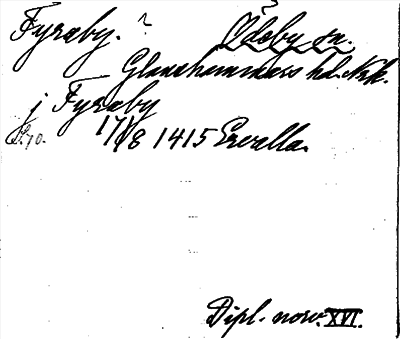 Fyraby. ? Ödeby sn.
Glanshammars hd. Nrk.
j Fyraby
17/8 1415 Ervalla.
Dipl. norv. XVI.